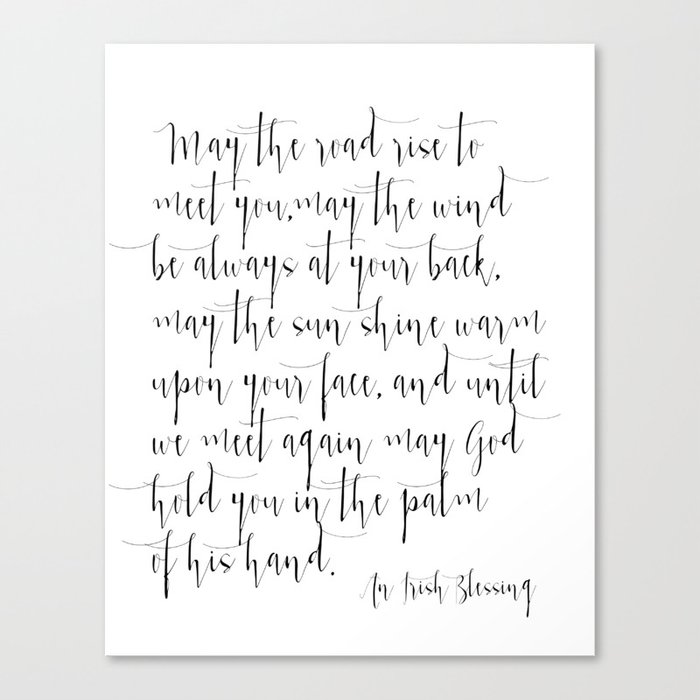 May the road rise to
meet you, may the wind
be always at your back,
may the sun shine warm
upon your face, and until
we meet again may God
hold you in the palm
of his hand.
An Irish Blessing